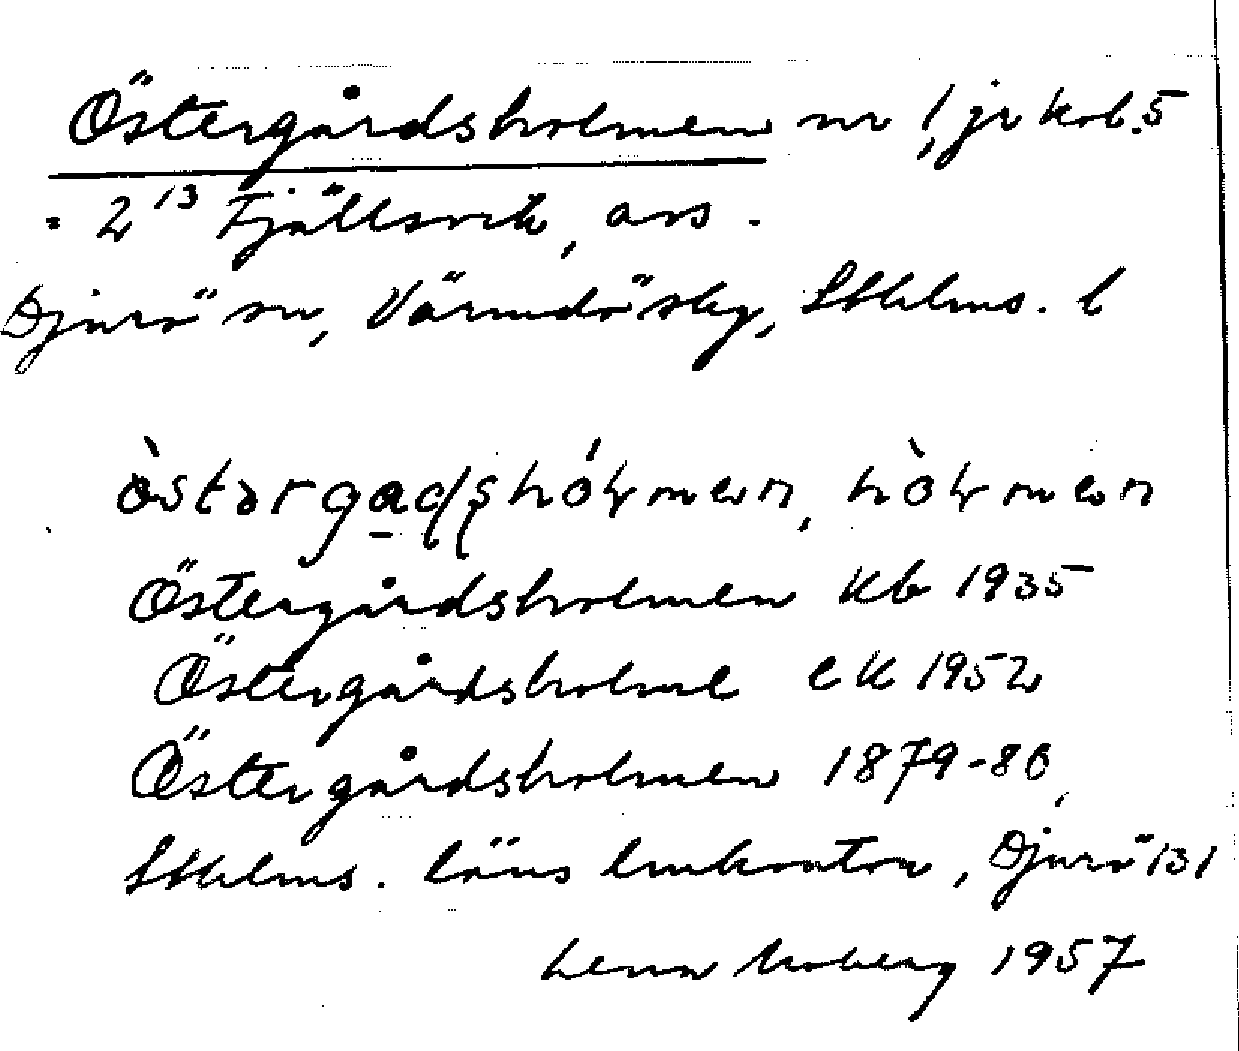 Östergårdsholmen nr 1, jr kol. 5
= 2¹³ Fjällsvik, avs.
Djurö sn, Värmdö skg, Sthlms. l
Östergårdsholmen Kb 1935
Östergårdsholme ek 1952
Östergårdsholmen 1879-80,
Sthlms. läns lmkontor, Djurö 131
Lena Moberg 1957